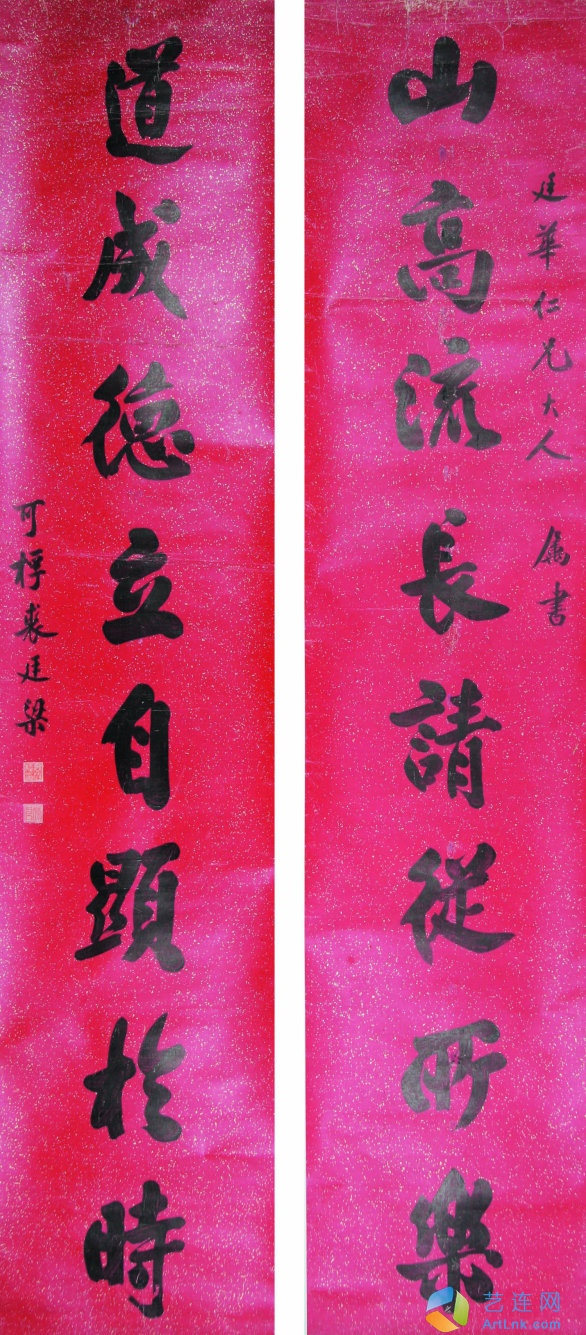 廷華仁兄大人 属書
山高流長請從所樂
道成德立自顯於時
可桴裘廷梁
艺连网
ArtLnk.com